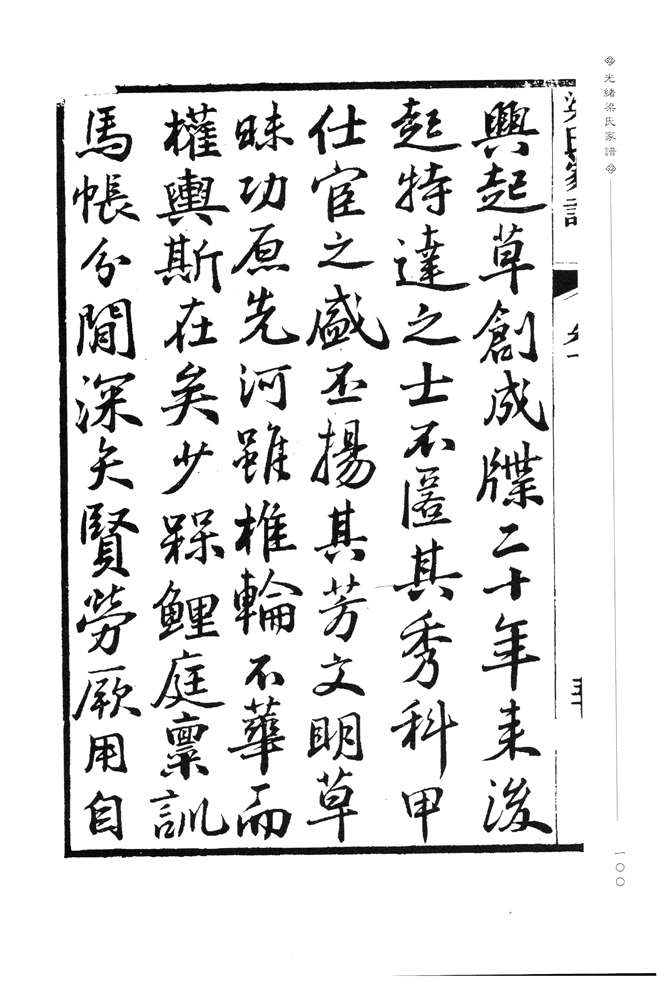 光緒梁氏家譜
一〇〇
興起草創成牒二十年来浚
起特達之士不匿其秀科甲
仕宦之盛丕揚其芳文明草
昧功原先河雖椎輪不華而
權輿斯在矣少
鯉庭禀訓
馬帳分間深矣賢勞厥用自